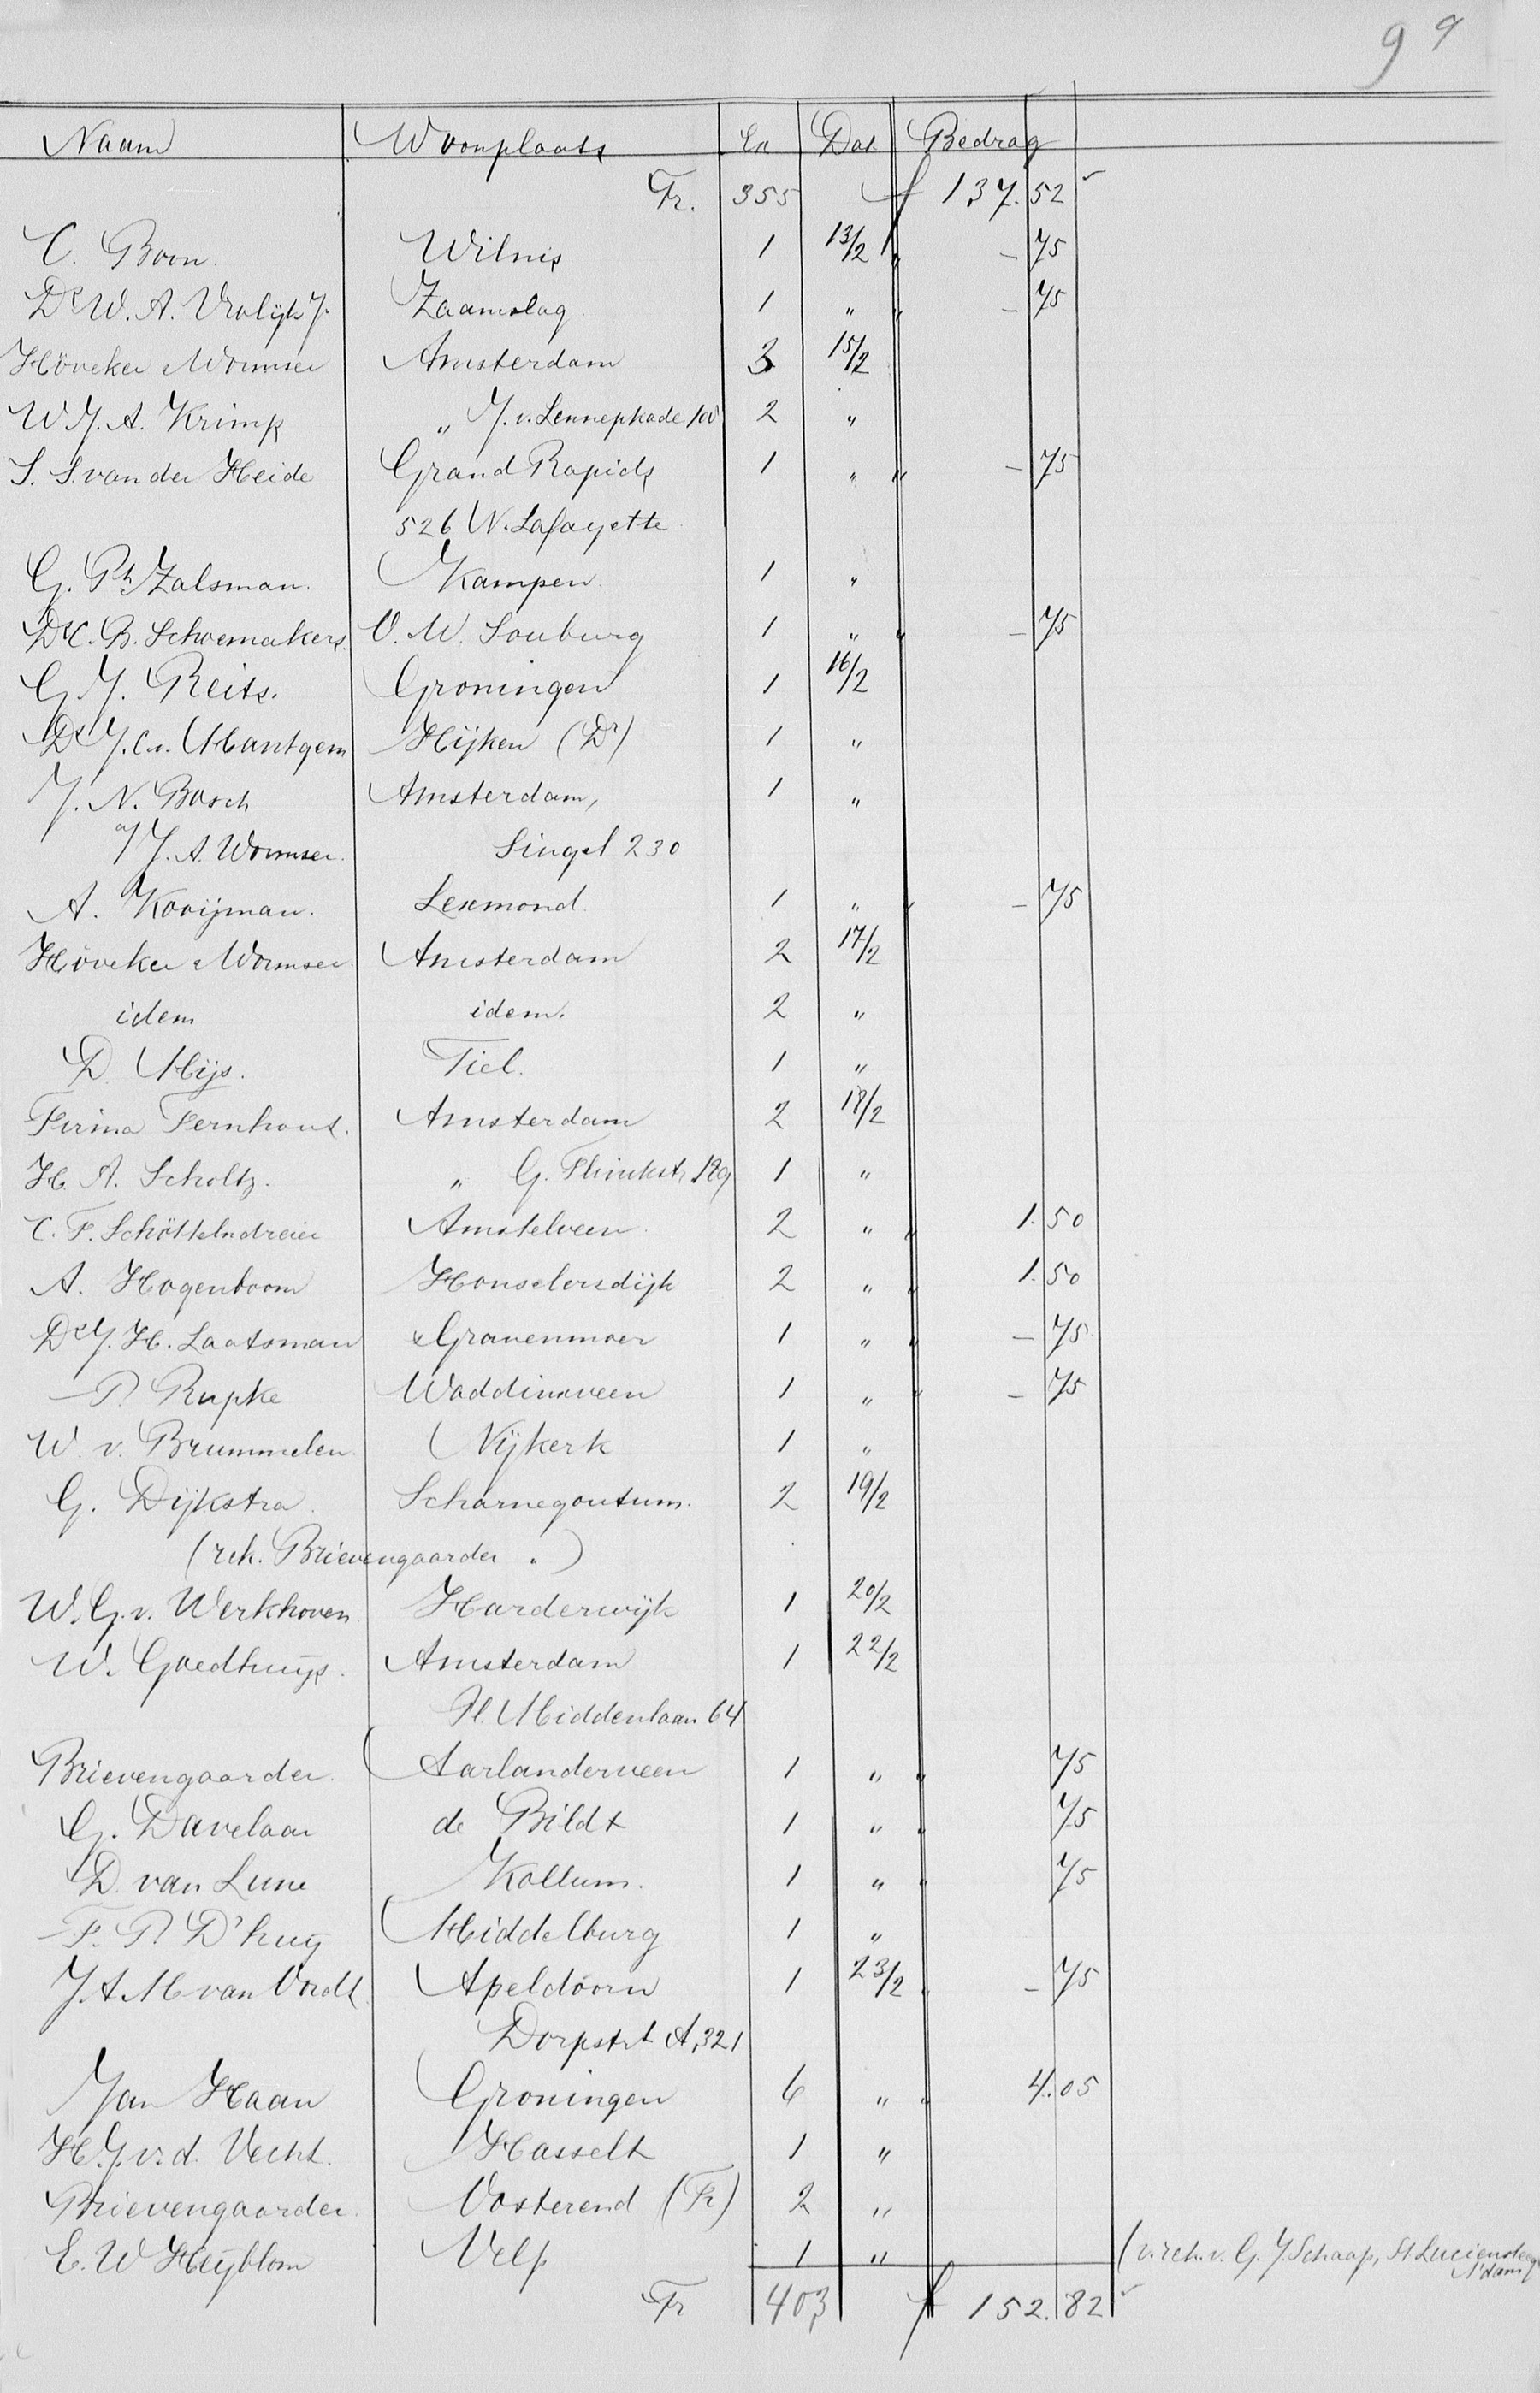 9 9
Naam Woonplaats Ex Dat Bedrag
Fr. 355 f 137.52
C. Boon. Wilnis 1 13/2 " - 75
Ds W. A. Vrolijk Jr. Zaamslag 1 " " - 75
Höveker & Wormser Amsterdam 3 15/2
W. J. A. Krimp " J. v. Lennepkade 100 2 "
S. S. van der Heide Grand Rapids 1 " " - 75
526 W. Lafayette
G. Ph Zalsman. Kampen. 1 "
Ds C. B. Schoemakers. O. W. Souburg 1 " " - 75
G. J. Reits. Groningen 1 16/2
Ds J. C. v. Mantgem Hijken (Dr) 1 "
J. N. Bosch Amsterdam, 1 "
a/ J. A. Wormser. Singel 230
A. Kooijman. Lexmond 1 " " - 75
Höveker & Wormser. Amsterdam 2 17/2
idem idem. 2 "
D. Mijs. Tiel. 1 "
Firma Fernhout. Amsterdam 2 18/2
H. A. Scholtz. " G. Flinckstr 129 1 "
C. F. Schöttelndreier Amstelveen 2 " " 1.50
A. Hogenboom Honselersdijk 2 " " 1.50
Ds J. H. Laatsman sGravenmoer 1 " " - 75
P. Rupke Waddinxveen 1 " " - 75
W. v. Brummelen. Nijkerk 1 "
G. Dijkstra. Scharnegoutum. 2 19/2
(rek. Brievengaarder ")
W. G. v. Werkhoven Harderwijk 1 20/2
W. Goedhuys. Amsterdam 1 22/2
Pl. Middenlaan 64
Brievengaarder. Aarlanderveen 1 " " 75
G. Davelaar de Bildt 1 " " 75
D. van Lune Kollum. 1 " " 75
F. P. D'huy Middelburg 1 "
J. A. M. van Oordt Apeldoorn 1 23/2 " - 75
Dorpstrt A, 321
Jan Haan Groningen 6 " " 4.05
H. J. v. d. Vecht. Hasselt 1 "
Brievengaarder. Oosterend (Fr) 2 "
E. W. Heijblom Velp 1 " (v. rek. v. G. J. Schaap, St Luciensteeg
A'dam)
Fr 403 f 152.82